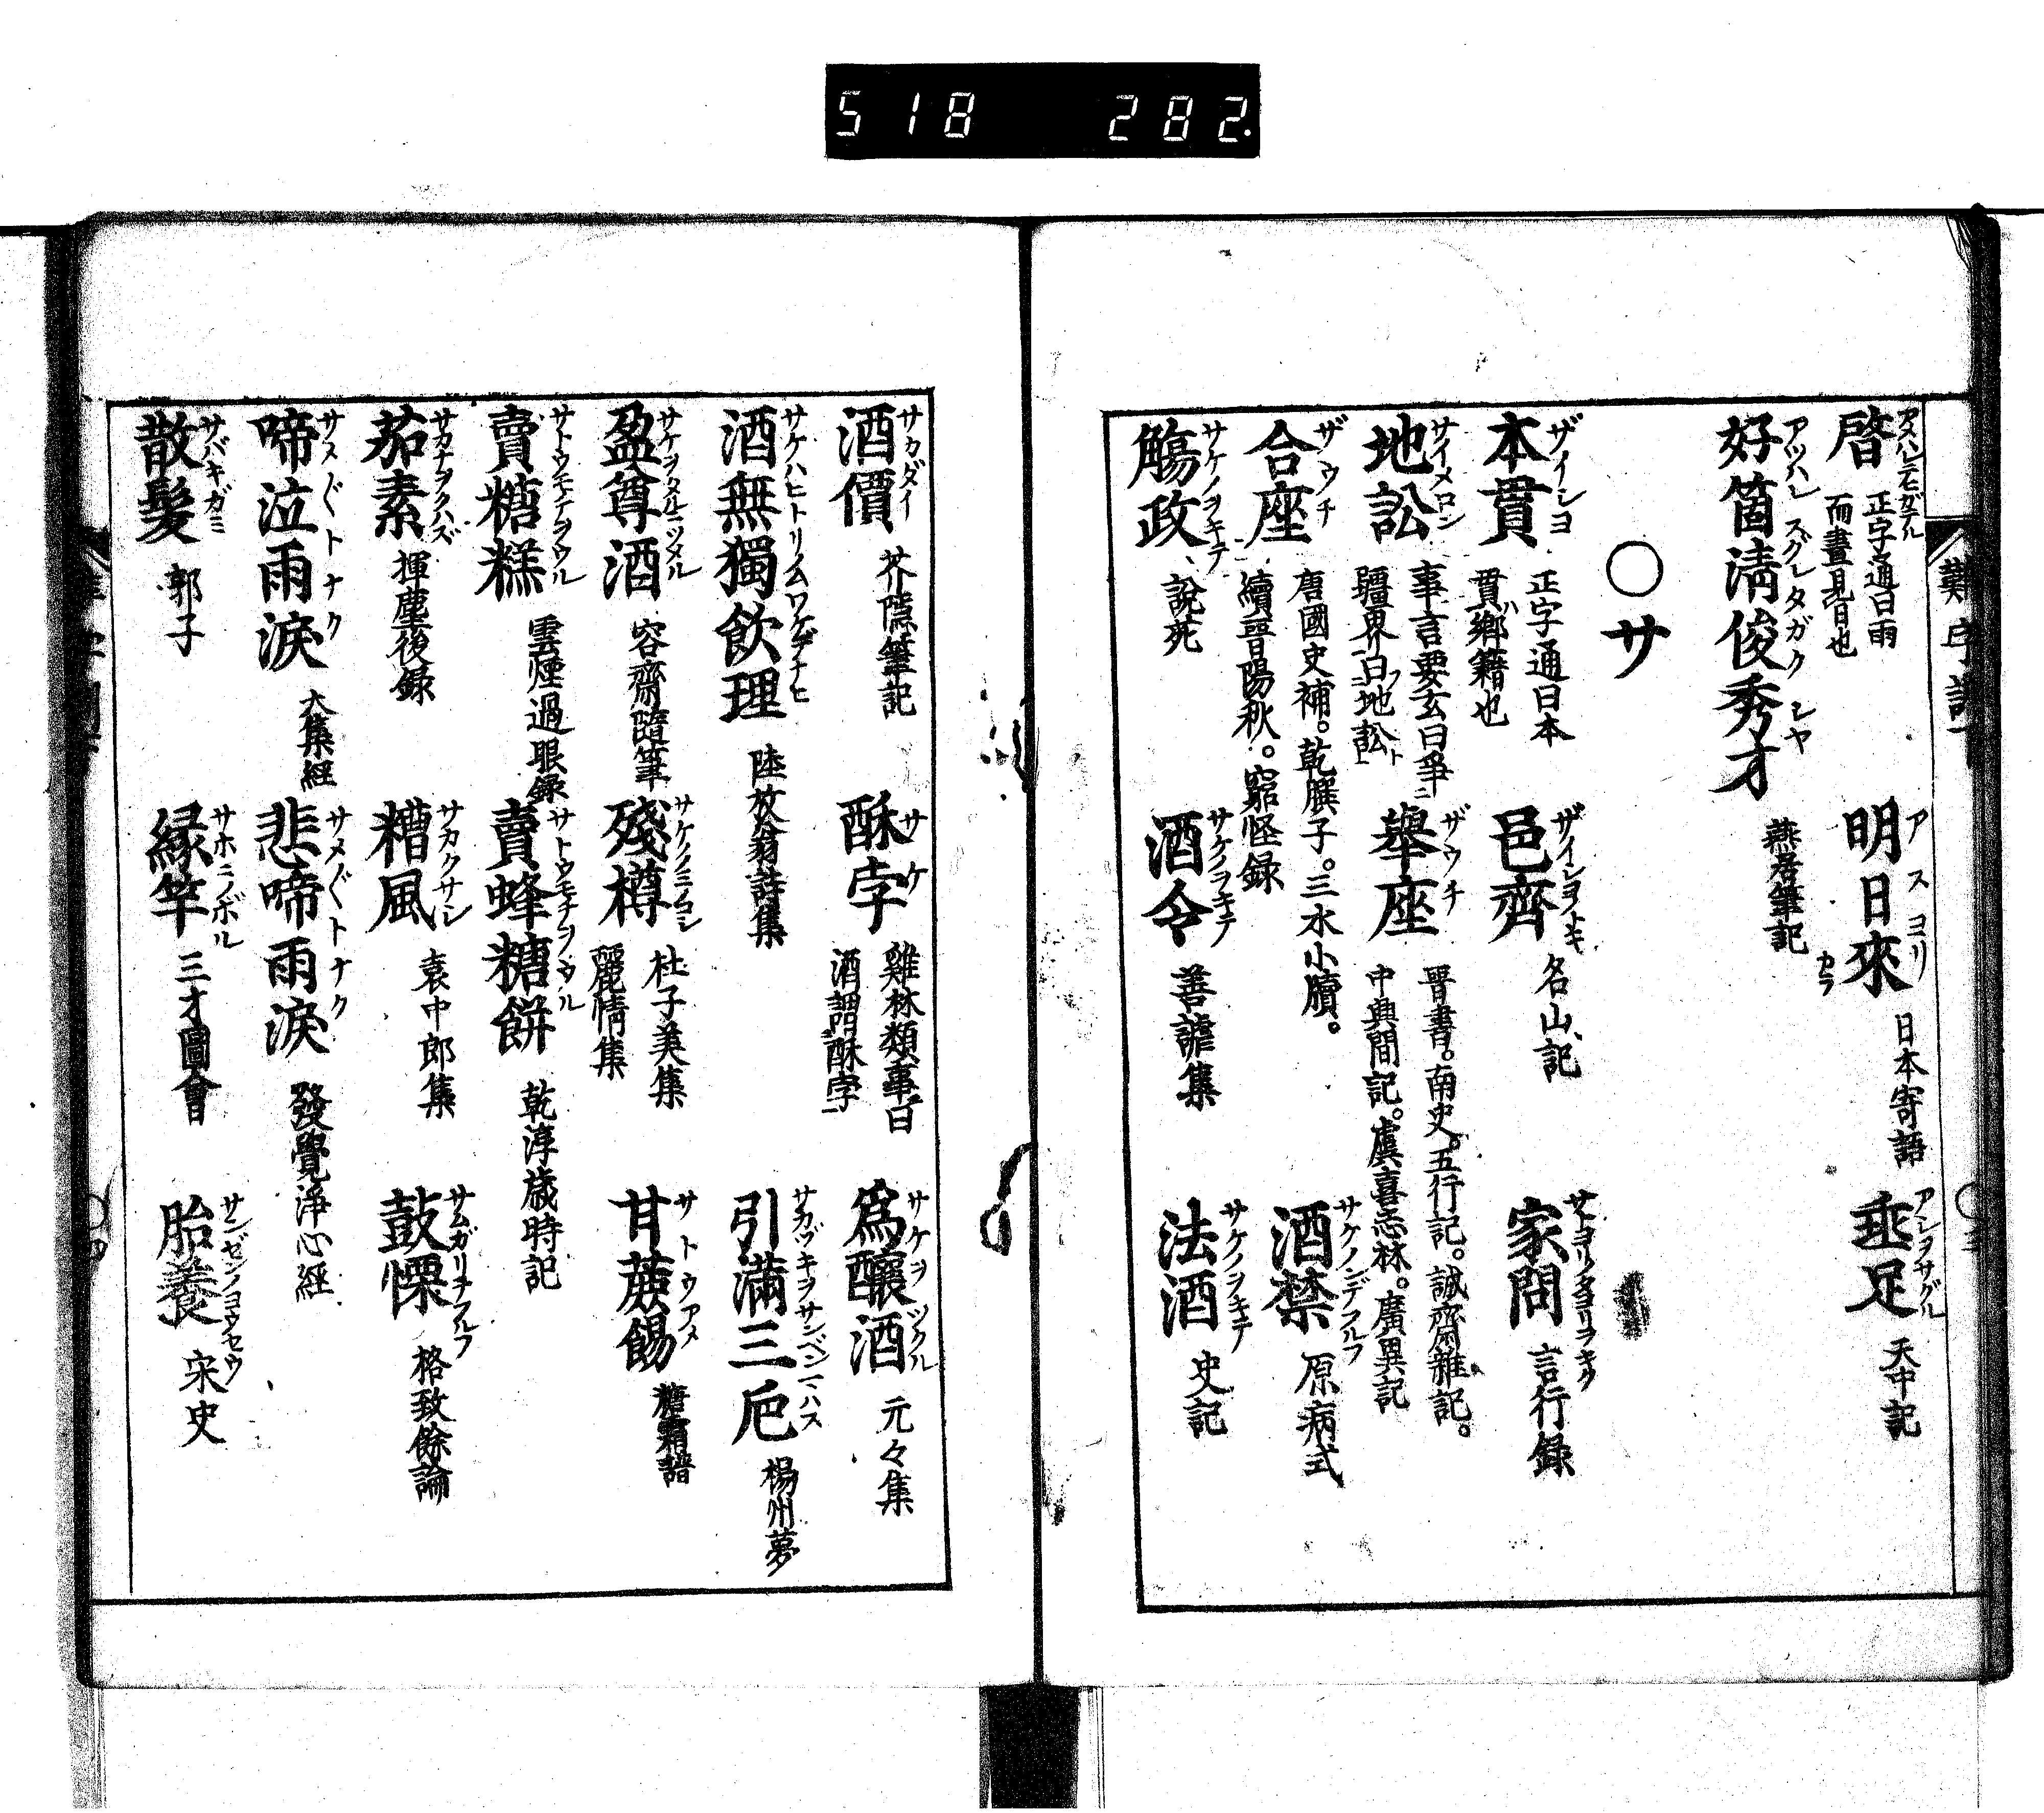 518 282.
啓 アスハレテヒガデル 正字通曰雨
而晝見日也
明日來 アスヨリ カラ 日本寄語
垂足 アシヲサグル 天中記
好箇清俊秀才 アツハレスグレタガクシヤ 燕居筆記
○サ
本貫 ザイシヨ 正字通曰本
貫ハ鄉籍也
邑齊 ザイシヨノトキ 名山記
家問 サトヨリノタヨリヲキク 言行録
地訟 サイメロン 事言要玄曰爭
疆界曰地訟
舉座 ザウチ 晉書。南史。五行記。誠齋雜記。
中興間記。虞喜志林。廣異記
合座 ザウチ 唐國史補。乾𦠆子。三水小牘。
續晉陽秋。窮怪録
酒禁 サケノンデフルフ 原病式
觴政 サケノヲキテ 說苑
酒令 サケノヲキテ 善謔集
法酒 サケノヲキテ 史記
酒價 サカダイ 芥隱筆記
酥孛 サケ 雞林類事曰
酒謂酥孛
爲釀酒 サケヲツクル 元々集
酒無獨飲理 サケハヒトリノムワケデナヒ 陸放翁詩集
引滿三巵 サカヅキヲサンベンマハス 楊州夢
盈尊酒 サケヲタルニツメル 容齋隨筆
殘樽 サケノノミノコシ 杜子美集
麗情集
甘蔗餳 サトウアメ 糖霜譜
賣糖糕 サトウモチヲウル 雲煙過眼録
賣蜂糖餅 サトウモチヲウル 乾淳歳時記
茹素 サカナヲクハズ 揮塵後録
糟風 サカクサシ 袁中郎集
鼓慄 サムガリテフルフ 格致餘論
啼泣雨淚 サメ〲トナク 大集経
悲啼雨淚 サメ〲トナク 發覺淨心經
散髮 サバキガミ 郭子
縁竿 サホニノボル 三才圖會
胎養 サンゼンノヨウセウ 宋史